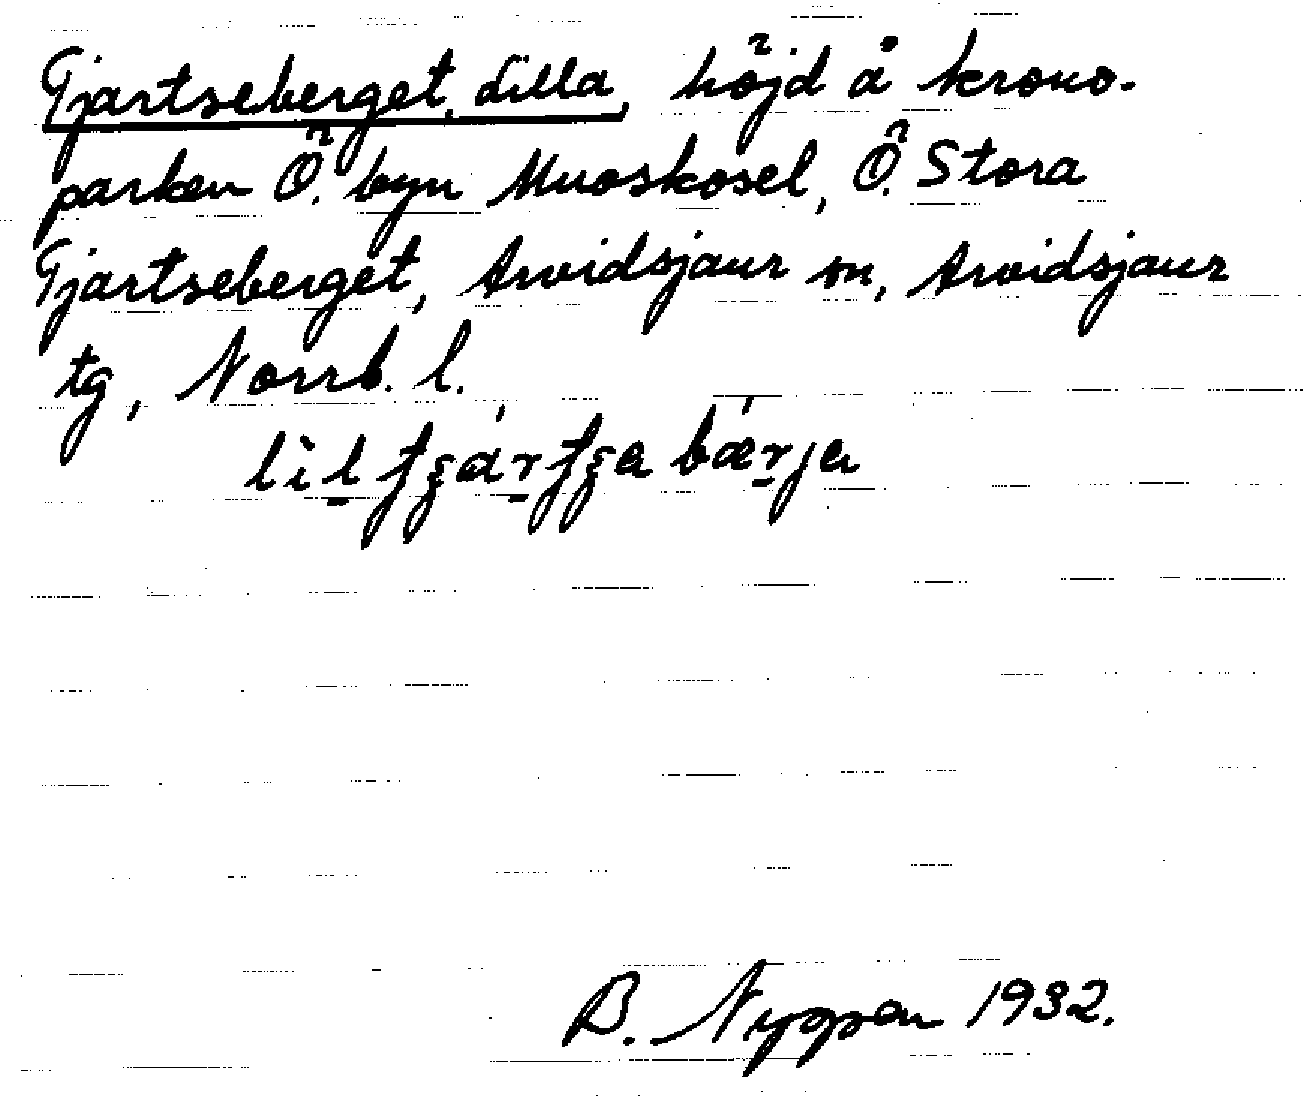 Tjartseberget, Lilla, höjd å krono-
parken Ö. byn Muoskosel, Ö. Stora
Tjartseberget, Arvidsjaur sn, Arvidsjaur
tg, Norrb. l.
B. Nyppen 1932.